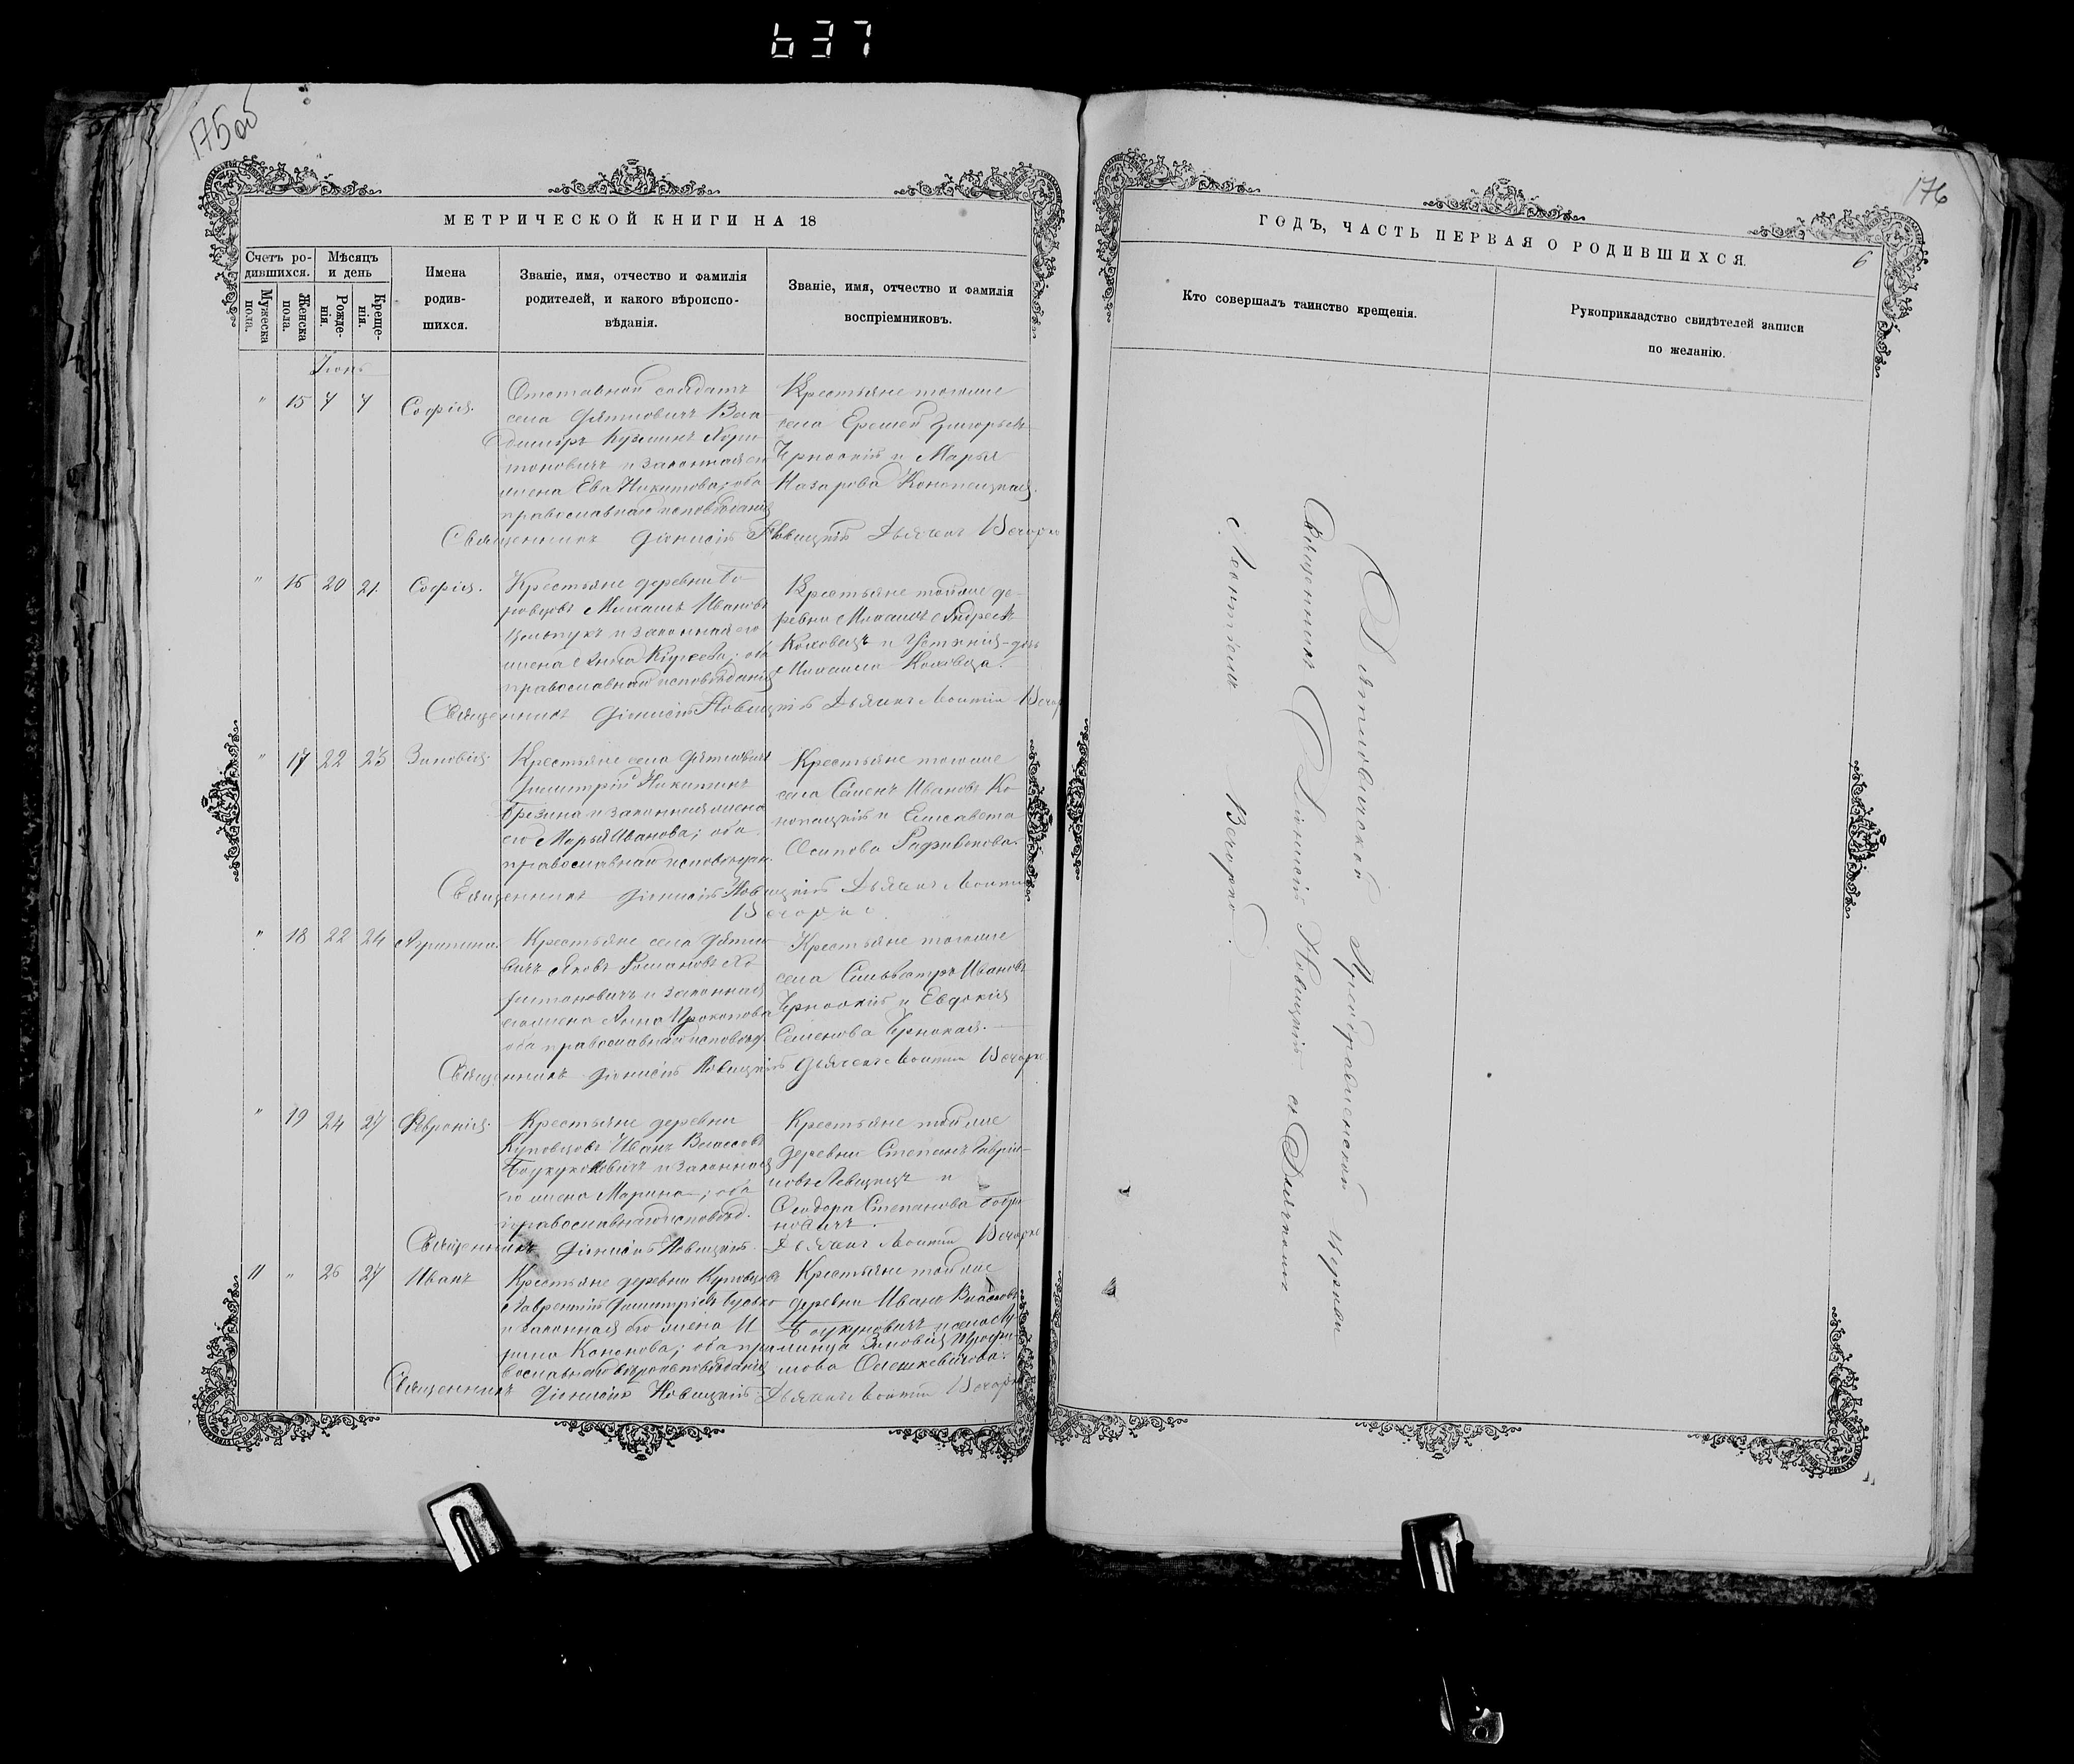 637
175 об
МЕТРИЧЕСКОЙ КНИГИ НА 18
Счетъ ро-
дившихся.
Мѣсяцъ
и день
Мужеска
пола.
Женска
пола.
Рожде-
нія.
Креще-
нія.
Имена
родив-
шихся.
Званіе, имя, отчество и фамилія
родителей, и какого вѣроиспо-
вѣданія.
Званіе, имя, отчество и фамилія
воспріемниковъ.
Іюнь
" 15 7 7 Софія.
Отставной солдатъ
села Дятловичъ Вла
димиръ Кузминъ
и законная его
жена Ева Никитова; оба
православнаго исповѣданія
Крестьяне тогоже
села Еремей Григорьевъ
Чернокій и Марья
Назарова Конопацкая.
Священникъ Діонисій Новицкій Дьячекъ Вечорко
" 16 20 21 Софія.
Крестьяне деревни
Михаилъ Ивановъ
и законная его
жена Анна; оба
православнаго исповѣданія
Крестьяне тойже де-
ревни Михаилъ Андреевъ
Коховецъ и Устинія-дочь
Михаила Коховца.
Священникъ Діонисій Новицкій Дьячекъ Леонтій Вечор
" 17 22 23 Зиновія.
Крестьяне села Дятловичъ
Димитрій Никитинъ
Брезина и законная жена
его Марья Иванова; оба
православнаго исповѣдан.
Крестьяне тогоже
села Семенъ Ивановъ Ко
нопацкій и Елисавета
Осипова
Священникъ Діонисій Новицкій Дьячекъ Леонтій
Вечорко.
" 18 22 24 Агрипина.
Крестьяне села Дятло
вичъ Яковъ Романовъ Ха
ритоновичъ и законная
его жена Анна Прокопова
оба православнаго исповѣд.
Крестьяне тогоже
села Сильвестръ Ивановъ
Чернокій и Евдокія
Семенова Чернокая.
Священникъ Діонисій Новицкій Дьячекъ Леонтій Вечорко
" 19 24 27 Февронія.
Крестьяне деревни
Куповцовъ Иванъ Власовъ
и законная
его жена Марина; оба
православнаго исповѣд.
Крестьяне тойже
деревни Степанъ Гаврії-
ловъ Левицкъ и
Феодора Степанова
новичъ.
Священникъ Діонисій Новицкій. Дьячекъ Леонтій Вечорко
11 " 26 27 Иванъ
Крестьяне деревни Куповцовъ
Лаврентій Димитріевъ Бусько
и законная его жена И
рина Кононова; оба пра
вославнаго вѣроисповѣданія
Крестьяне тойже
деревни Иванъ Власовъ
и села
Зиновія Трофи
мова Олешкевичова.
Священникъ Діонисій Новицкій Дьячекъ Леонтій Вечорко
176
6
ГОДЪ, ЧАСТЬ ПЕРВАЯ О РОДИВШИХСЯ.
Кто совершалъ таинство крещенія.
Рукоприкладство свидѣтелей записи
по желанію.
Дятловичской Преображенской Церкви
Священникъ Діонисій Новицкій съ Дьячкомъ
Леонтіемъ Вечорко.